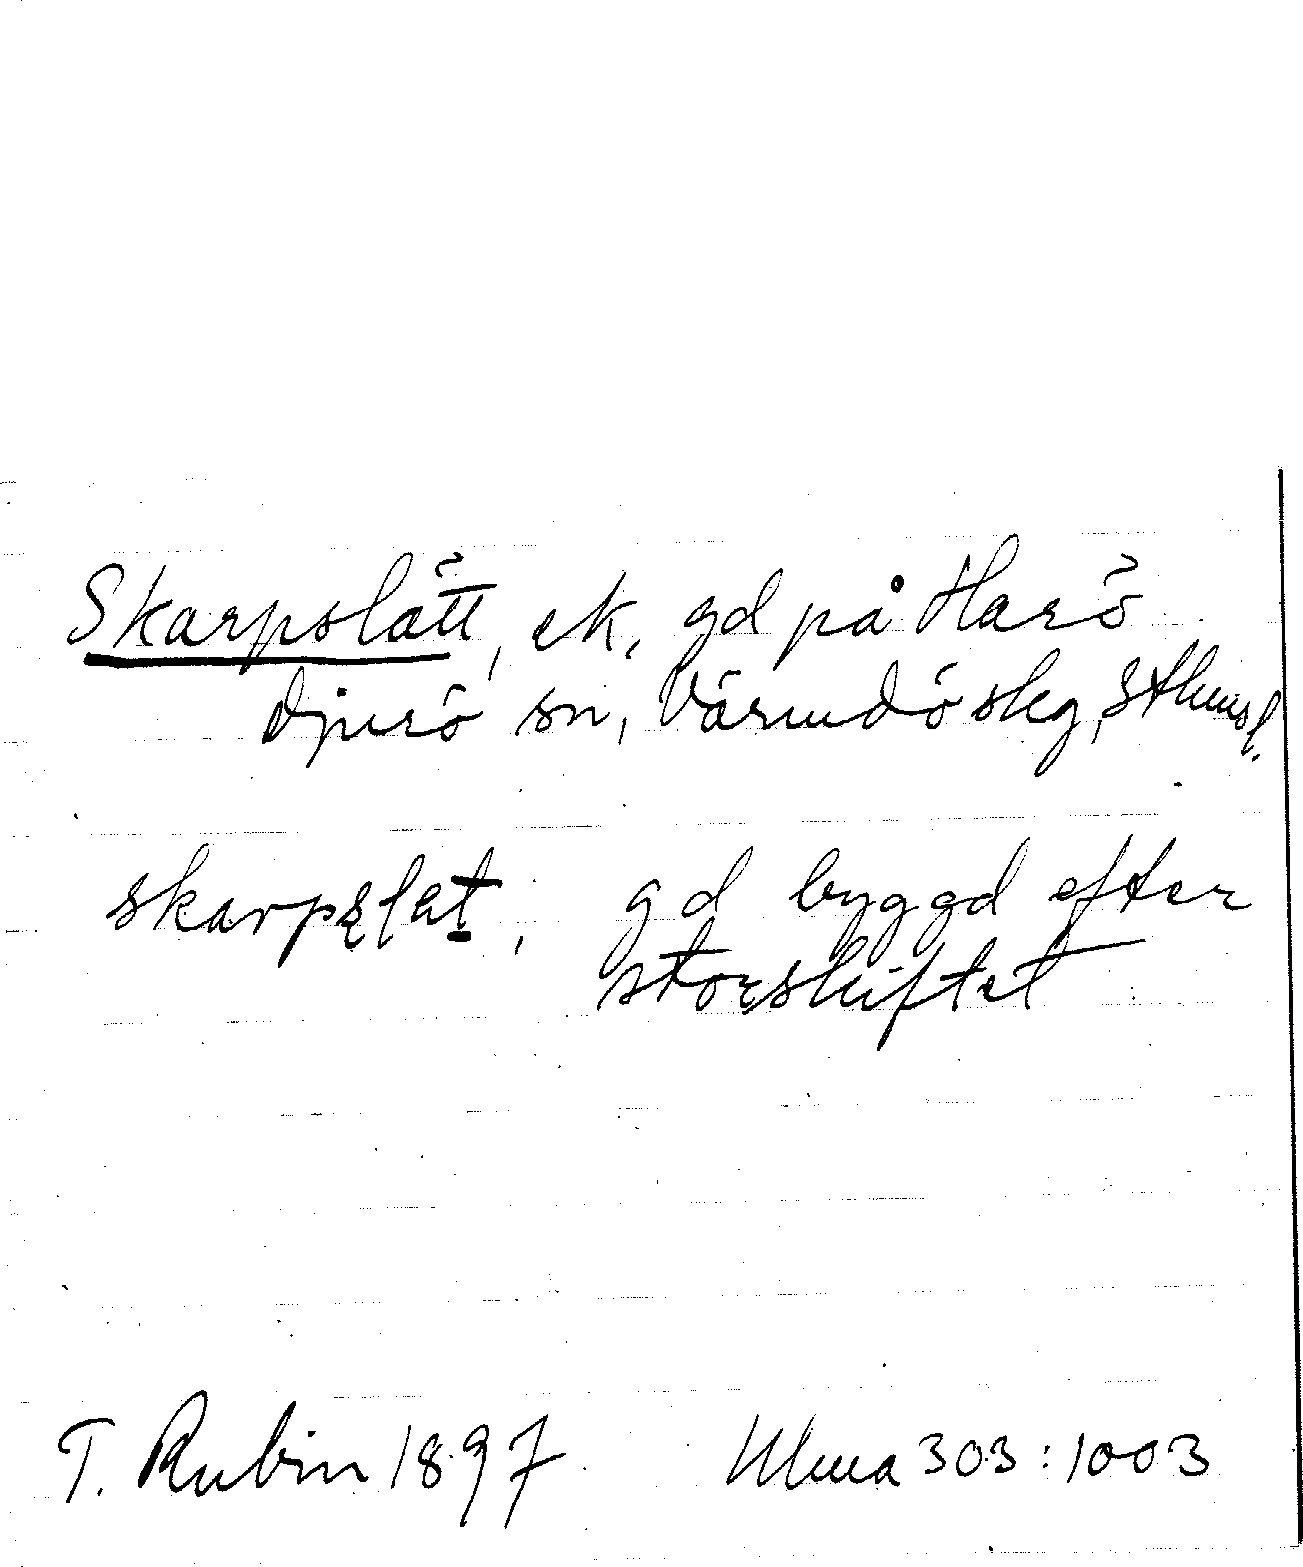 Skarpslätt, ek, gd på Harö
Djurö sn, Värmdö skg, Sthmsl.
skarpslat, gd byggd efter
storskiftet
T. Rubin 1897 Ulma 303:1003